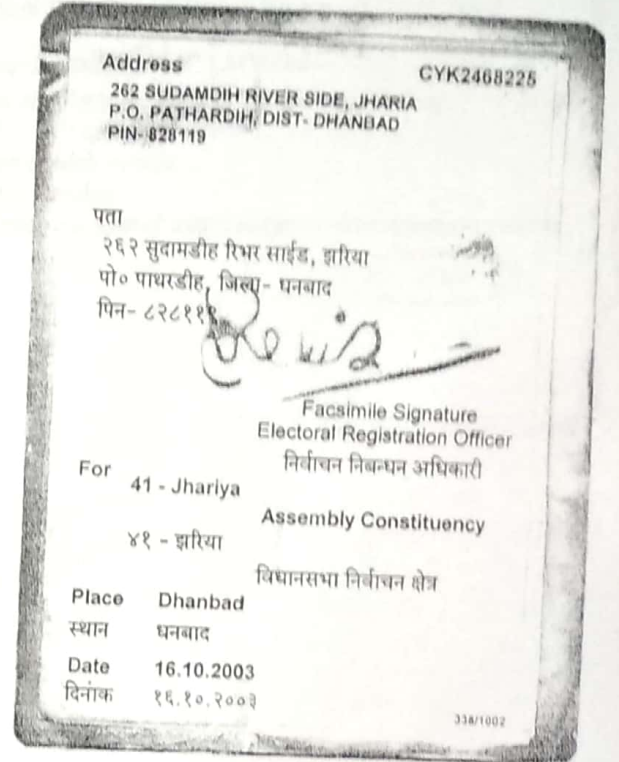 Address
CYK2468225
262 SUDAMDIH RIVER SIDE, JHARIA
P.O. PATHARDIH, DIST- DHANBAD
PIN- 828119
पता
२६२ सुदामडीह रिभर साईड, झरिया
पो० पाथरडीह, जिला- धनबाद
पिन- ८२८११९
Facsimile Signature
Electoral Registration Officer
निर्वाचन निबन्धन अधिकारी
For
41 - Jhariya
Assembly Constituency
४१ - झरिया
विधानसभा निर्वाचन क्षेत्र
Place Dhanbad
स्थान धनबाद
Date 16.10.2003
दिनांक १६.१०.२००३
338/1002